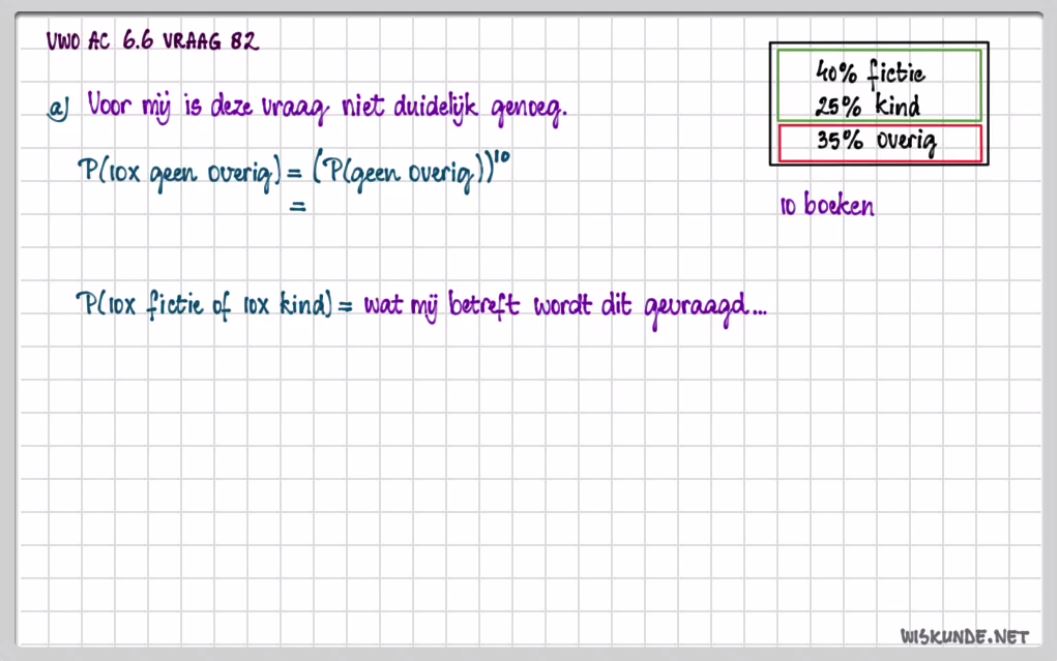 VWO AC 6.6 VRAAG 82
40% fictie
25% kind
35% overig
10 boeken
a) Voor mij is deze vraag niet duidelijk genoeg.
P(10x geen overig) = (P(geen overig))¹⁰
=
P(10x fictie of 10x kind) = wat mij betreft wordt dit gevraagd...
WISKUNDE.NET